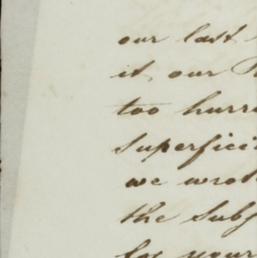 our last
it our
too hurri
superfici
we wrot
the subj
for your